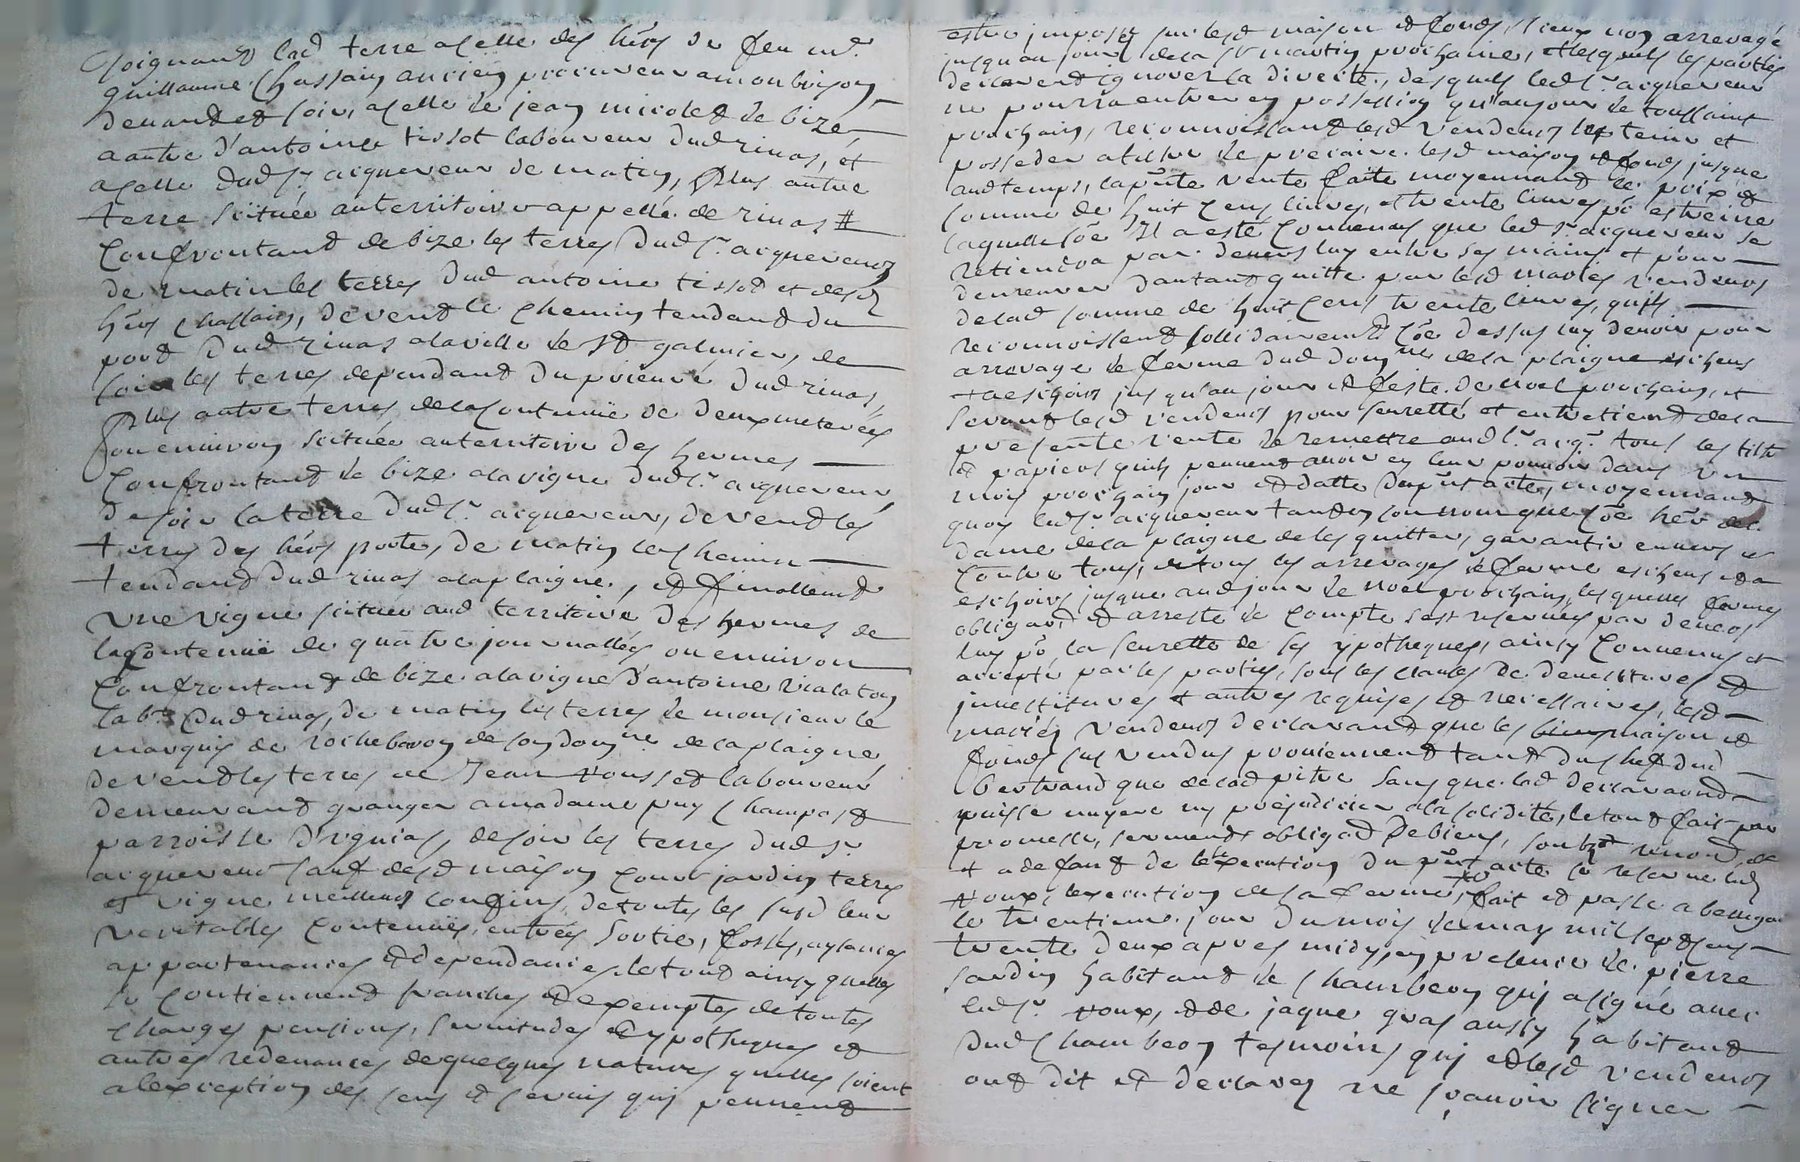 Joignant lad terre a celle des hérs de feu mr
guillaume Chassain ancien procureur a monbrison
devant et soir, a celle de jean micolet de bize
a autre d'antoine tissot laboureur dud rivas, et
a celle dud sr acquereur de matin, Plus autre
terre scituée au territoire appellé de rivas #
Confrontant de bize les terres dud sr acquereur
de matin les terres dud antoine tissot et desd
hérs Chassain, de vent le chemin tendant du
port dud rivas a la ville de st galmier, de
soir les terres dependant du prieuré dud rivas,
Plus autre terres de la Contenuë de deux meterées
ou environ scituée au territoire des hermes
Confrontant de bize a la vigne dud sr acquereur
de soir la terre dud sr acquereur, de vent les
terres des hérs porte, de matin le chemin
tendant dud rivas a la plaigne, et finallemt
une vigne scituée aud territoire des hermes de
la Contenuë de quatre journallées ou environ
Confrontant de bize a la vigne d'antoine vialaton
labr dud rivas, de matin les terres de monsieur le
marquis de rochebaron de son domne de la plaigne
de vent les terres de Jean rousset laboureur
demeurant granger a madame puy Champost
parroisse d'ignias, de soir les terres dud sr
acquereur sauf desd maison cour jardin terres
et vigne meilleurs confins, de toutes les susd leur
veritables Contenuës, entrées sortie, fossés, aysances
appartenances et dependances, le tout ainsy quelles
se contiennent franches et exemptes de toutes
charges pensions, servitudes et ypotheques et
autres redevances de quelques natures quelles soient
a l'exception des cens et servis qui peuvent
estre imposés sur lesd maison et fonds, iceux non arreragé
jusqu'au jour de la st martin prochaine, et lesquels les parties
declarent ignorer la directe, desquels led sr acquereur
ne pourra entrer en possession qu'au jour de toussaint
prochain, reconnoissant lesd vendeurs les tenir et
posseder a titre de precaire lesd maison et fonds jusque
aud temps, la pnte vente faite moyennant le prix et
somme de huit cens livres, et trente livres pr estreine
laquelle sôe Il a esté Convenus que led sr acquereur se
retiendra par devers luy entre ses mains et pour
demeurer d'autant quitte par lesd mariés vendeurs
de lad somme de huit cens trente livres, qu'ils
reconnoissent sollidairemt côe dessus luy devoir pour
arrerage de ferme dud domne de la plaigne eschus
et a eschoir jusqu'au jour et feste de noel prochain, et
seront lesd vendeurs pour seuretté et entretient de la
presente vente de remettre aud sr acqr tous les tiltres
et papiers qu'ils peuvent avoir en leur pouvoir dans un
mois prochain jour et datte du pnt acte, moyennant
quoy led sr acquereur tant en son nom que côe hér de
dame de la plaigne de les quitter, garantir envers et
Contre tous, de tous les arrerages de ferme eschus et a
eschoir jusque aud jour de noel prochain, lesquelles fermes
obligaõn et arresté de compte s'est réservés par devers
luy pr la seuretté de ses ypotheques, ainsy Convenus et
accepté par les parties, sous les clauses de devestitures et
investitures et autres requises et necessaires, lesd
mariés vendeurs declarant que les maison et
fonds sus vendus proviennent tant du chef dud
bertrand que de lad pitre sans que lad declaraõn
puisse nuyre ny préjudicier a la solidité, le tout fait par
promesse, serment obligaõn de biens, soubmõn renonõn
et a defaut de l'execution du pnt acte se reserve led sr
roux l'execution de sa ferme, fait et passé a bellegar
le trentieme jour du mois de may mil sept cens
trente deux apres midy, en presence de pierre
jardin habitant de Chambeon qui a signé avec
led sr roux, et de jaque gras aussy habitant
dud Chambeon tesmoins qui et lesd vendeurs
ont dit et declarer ne sçavoir signer